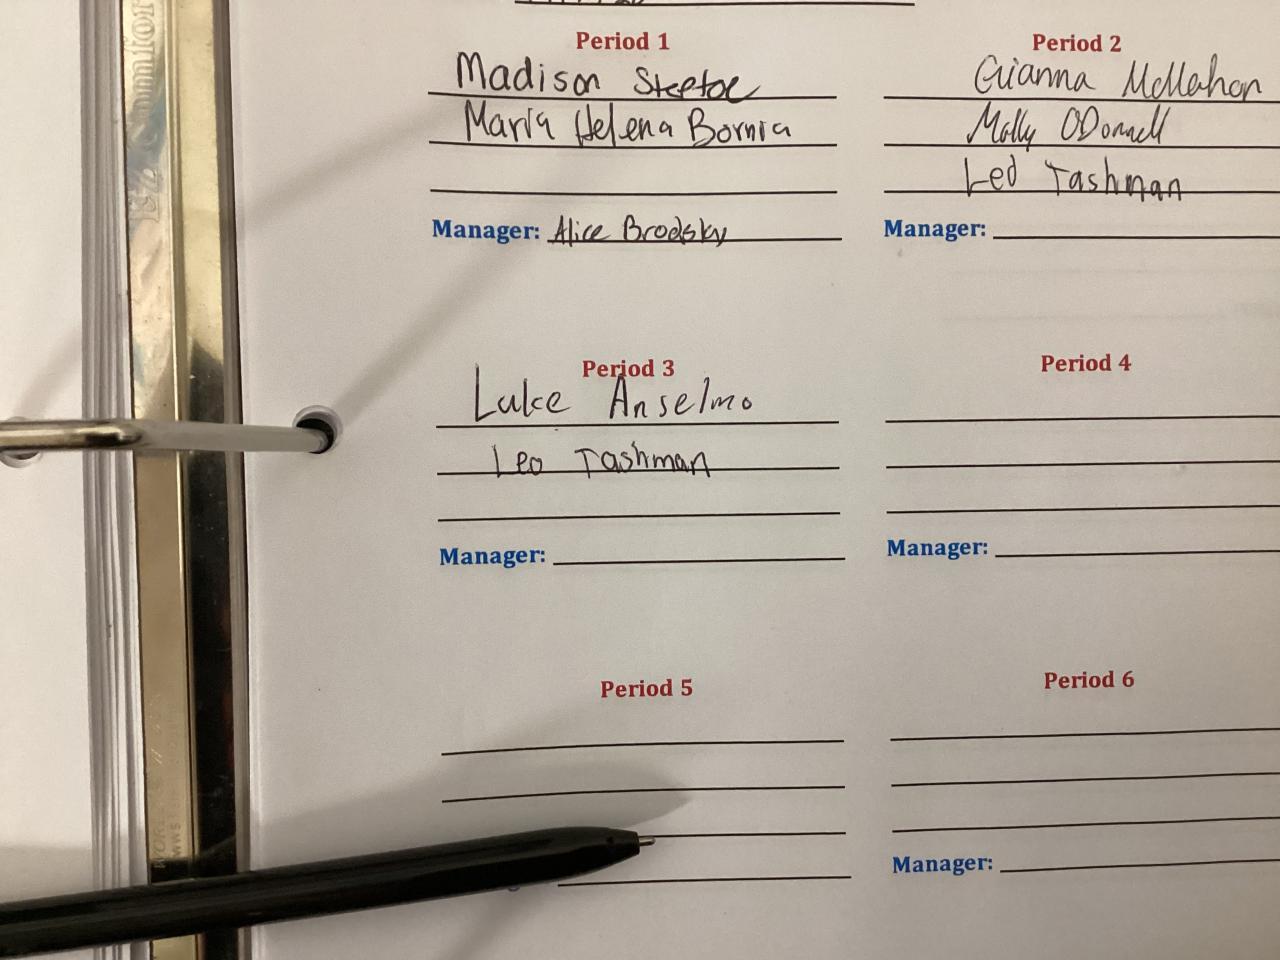 Period 1
Madison Steptoe
Maria Helena Bornia
Manager: Alice Brodsky
Period 2
Gianna McMahon
Molly ODonnell
Leo Tashman
Manager:
Period 3
Luke Anselmo
Leo Tashman
Manager:
Period 4
Manager:
Period 5
Period 6
Manager: